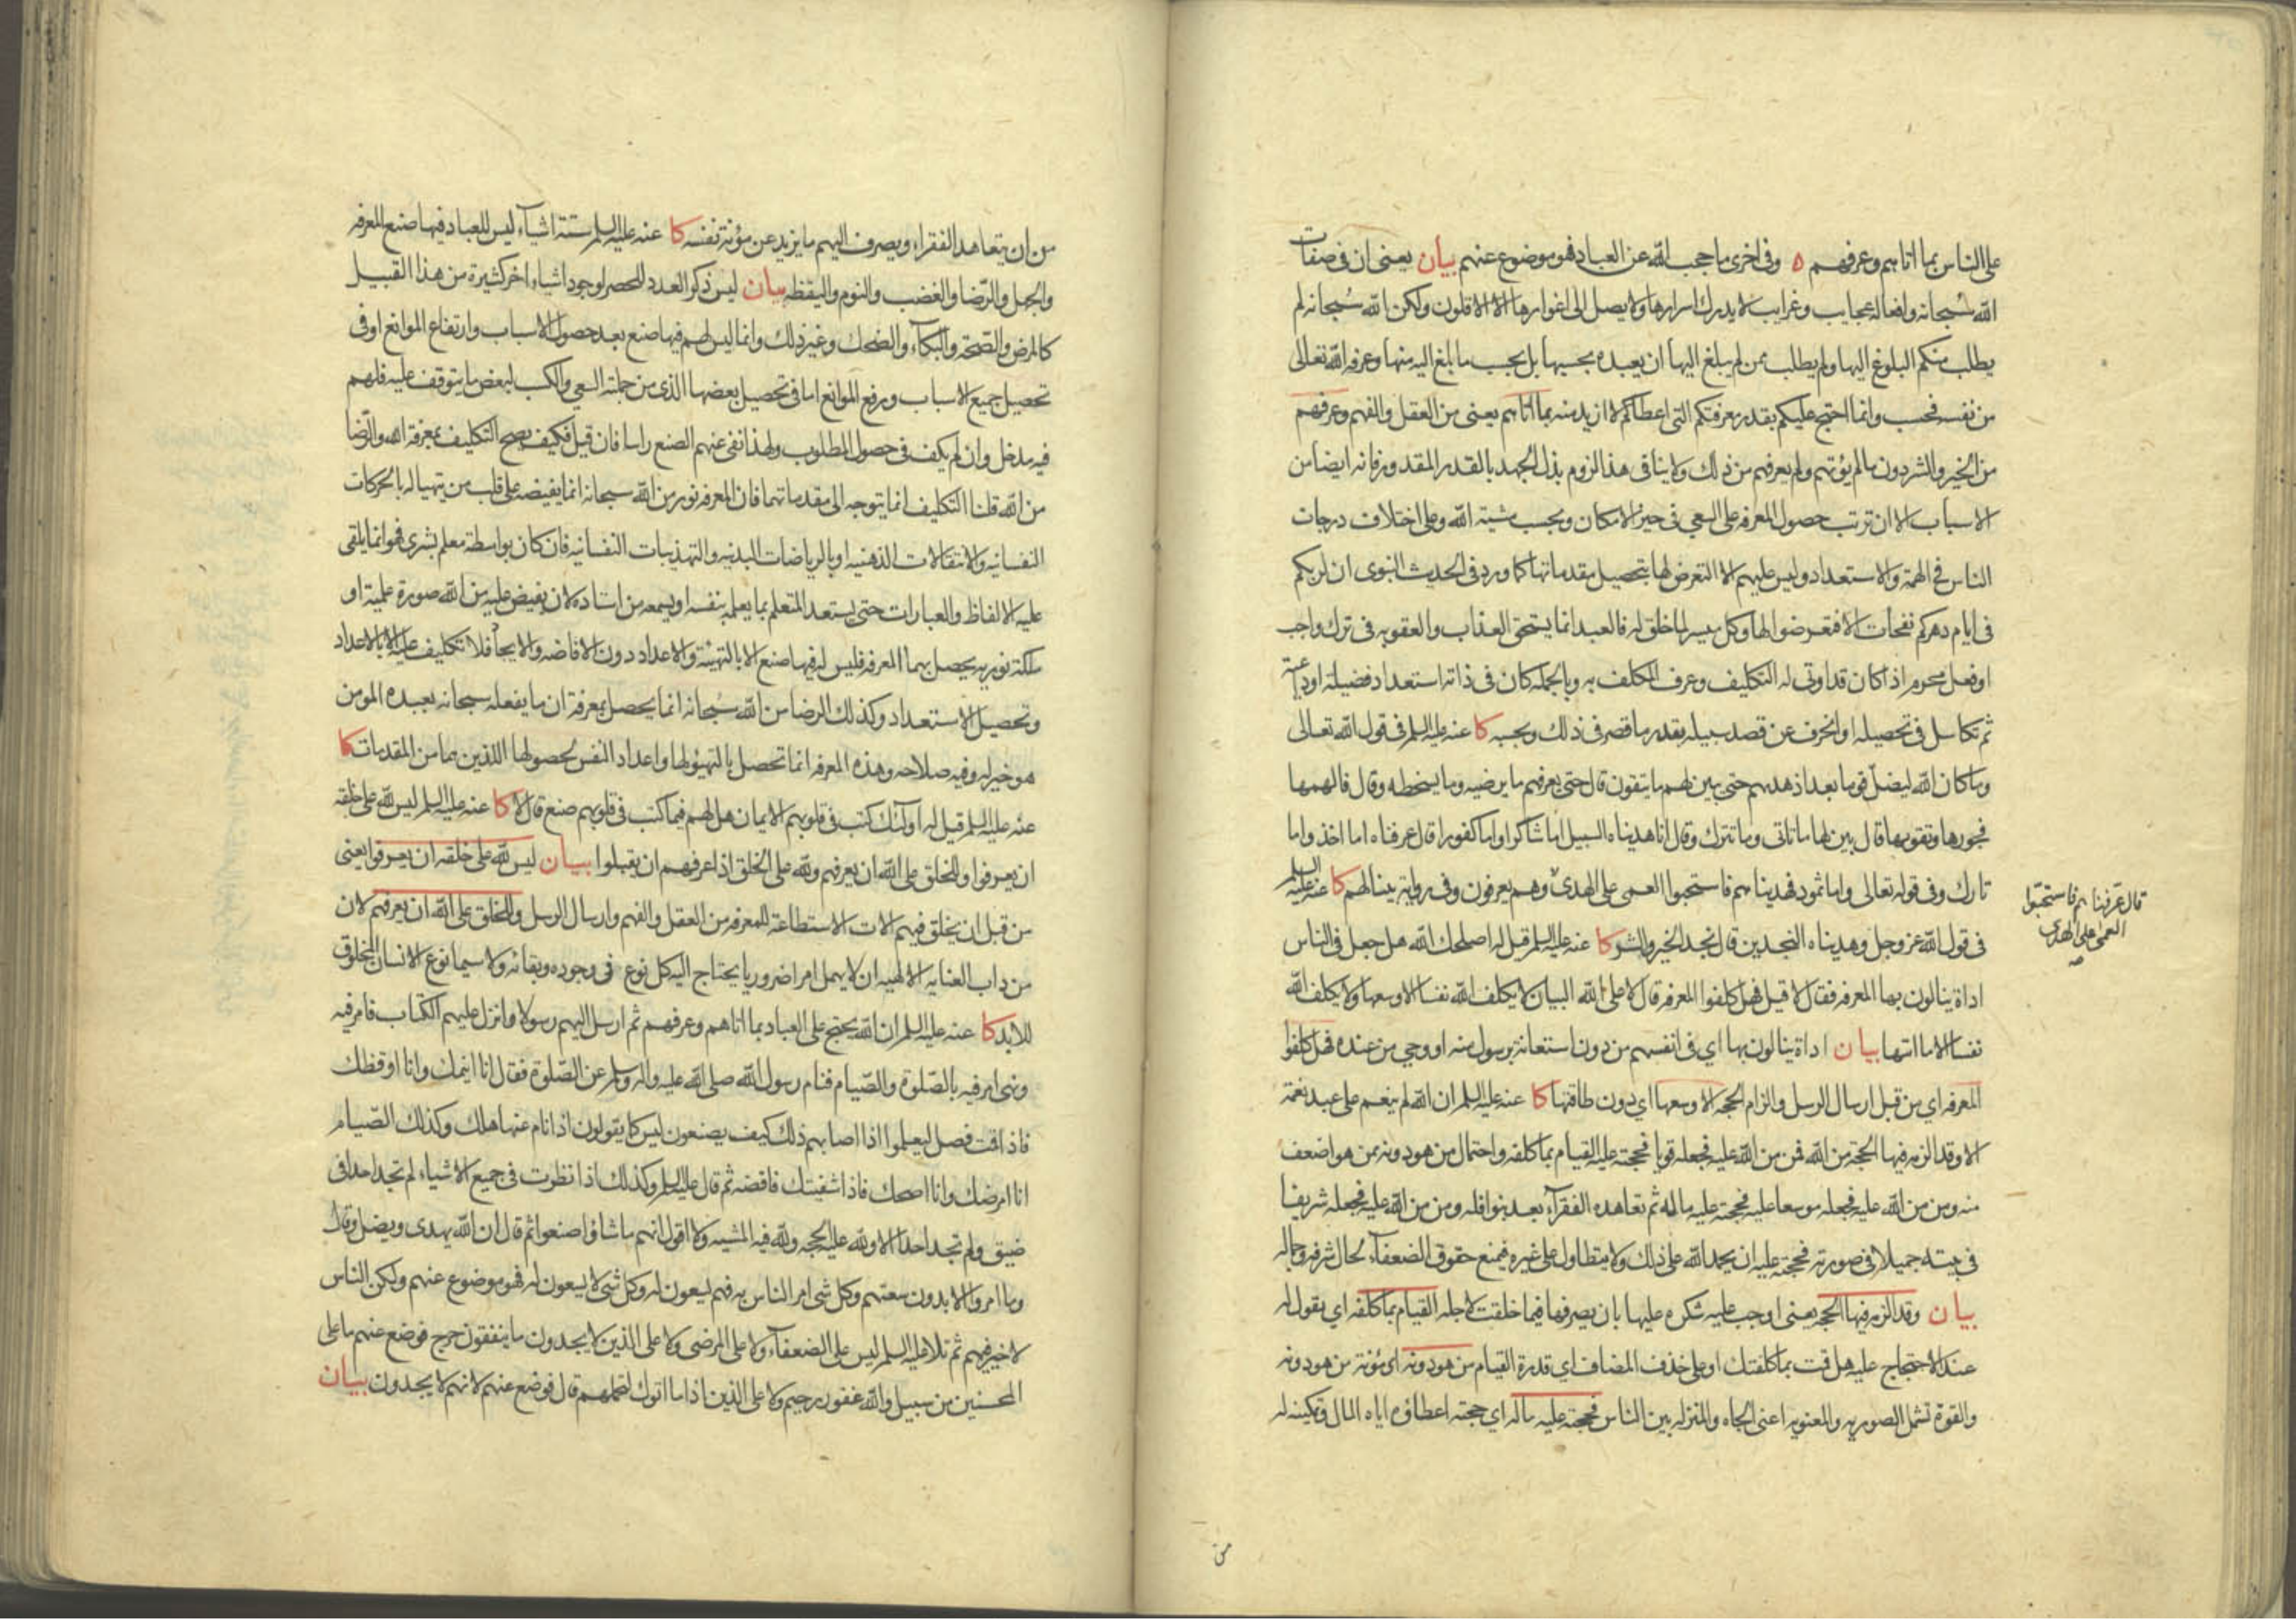 على الناس بما اتاهم وعرفهم ه وفي اخرى ما حجب الله عن العباد فهو موضوع عنهم بيان يعني ان في صفات
الله سبحانه وافعاله عجايب وغرايب لا يدرك اسرارها ولا يصل الى اغوارها الا الاقلون ولكن الله سبحانه لم
يطلب منكم البلوغ اليها ولم يطلب ممن لم يبلغ اليها ان يعبده بحسبها بل بحسب ما بلغ اليه منها وعرفه الله تعالى
من نفسه فحسب وانما احتج عليكم بقدر معرفتكم التي اعطاكم لا ازيد منه بما اتاهم يعني من العقل والفهم وعرفهم
من الخير والشر دون ما لم يؤتهم ولم يعرفهم من ذلك ولا ينافي هذا لزوم بذل الجهد بالقدر المقدور فانه ايضا من
الاسباب الا ان ترتب حصول المعرفه على السعي في حيز الامكان وبحسب مشية الله وعلى اختلاف درجات
الناس في الهمة والاستعداد وليس عليهم الا التعرض لها بتحصيل مقدماتها كما ورد في الحديث النبوي ان لربكم
في ايام دهركم نفحات الا فتعرضوا لها وكل ميسر لما خلق له فالعبد انما يستحق العذاب والعقوبه في ترك واجب
او فعل محرم اذا كان قد اوتي له التكليف وعرف المكلف به وبالجمله كان في ذاته استعداد فضيلة اوديعة
ثم تكاسل في تحصيله او انحرف عن قصد سبيله بقدر ما قصر في ذلك وبحسبه كا عنه عليه السلم في قول الله تعالى
وما كان الله ليضل قوما بعد اذ هديهم حتى يبين لهم ما يتقون قال حتى يعرفهم ما يرضيه وما يسخطه وقال فالهمها
فجورها وتقويها قال بين لها ما تاتي وما تترك وقال انا هديناه السبيل اما شاكرا واما كفورا قال عرفناه اما اخذ واما
تارك وفي قوله تعالى واما ثمود فهديناهم فاستحبوا العمى على الهدى وهم يعرفون وفي رواية بينا لهم كا عنه عليه السلم
قال عرفناهم فاستحبوا
العمى على الهدى
صح
في قول الله عز وجل وهديناه النجدين قال نجد الخير والشر كا عنه عليه السلم قيل له اصلحك الله هل جعل في الناس
اداة ينالون بها المعرفه فقال لا قيل فهل كلفوا المعرفه قال لا على الله البيان لا يكلف الله نفسا الا وسعها ولا يكلف الله
نفسا الا ما اتيها بيان اداة ينالون بها اي في انفسهم من دون استعانة برسول منه او وحي من عنده فهل كلفوا
المعرفه اي من قبل ارسال الرسل والزام الحجه الا وسعها اي دون طاقتها كا عنه عليه السلم ان الله لم ينعم على عبد نعمة
الا وقد الزمه فيها الحجة من الله فمن من الله عليه فجعله قويا فحجته عليه القيام بما كلفه واحتمال من هو دونه ممن هو اضعف
منه ومن من الله عليه فجعله موسعا عليه فحجته عليه ماله ثم تعاهده الفقرآء بعد بنوافله ومن من الله عليه فجعله شريفا
في بيته جميلا في صورته فحجته عليه ان يحمد الله على ذلك ولا يتطاول على غيره فيمنع حقوق الضعفآء لحال شرفه وجماله
بيان وقد الزمه فيها الحجه يعني اوجب عليه شكره عليها بان يصرفها فيما خلقت لاجله القيام بما كلفه اي يقول له
عند الاحتجاج عليه هل قمت بما كلفتك او على حذف المضاف اي قدرة القيام من هو دونه اي مؤنة من هو دونه
والقوة تشمل الصوريه والمعنويه اعني الجاه والمنزله بين الناس فحجته عليه ماله اي حجته اعطاؤه اياه المال وتمكينه له
من
من ان يتعاهد الفقراء ويصرف اليهم ما يزيد عن مؤنة نفسه كا عنه عليه السلم ستة اشيآء ليس للعباد فيها صنع المعرفه
والجهل والرضا والغضب والنوم واليقظه بيان ليس ذكر العدد للحصر لوجود اشياء اخر كثيرة من هذا القبيل
كالمرض والصحة والبكآء والضحك وغير ذلك وانما ليس لهم فيها صنع بعد حصول الاسباب وارتفاع الموانع او في
تحصيل جميع الاسباب ورفع الموانع اما في تحصيل بعضها الذي من جملته السعي والكسب لبعض ما يتوقف عليه فلهم
فيه مدخل وان لم يكف في حصول المطلوب ولهذا نفى عنهم الصنع راسا فان قيل فكيف يصح التكليف بمعرفة الله والرضا
من الله قلنا التكليف انما يتوجه الى مقدماتهما فان المعرفه نور من الله سبحانه انما يفيضه على قلب من يتهيا له بالحركات
النفسانيه والانتقالات الذهنيه او بالرياضات البدنيه والتهذيبات النفسانيه فان كان بواسطة معلم بشري فهو انما يلقى
عليه الالفاظ والعبارات حتى يستعد المتعلم بما يعلمه بنفسه او يسمعه من استاده لان يفيض عليه من الله صورة علمية او
ملكة نوريه يحصل بهما المعرفه فليس له فيها صنع الا بالتهيئة والاعداد دون الافاضه والايجاد فلا تكليف عليه الا بالاعداد
وتحصيل الاستعداد وكذلك الرضا من الله سبحانه انما يحصل بمعرفة ان ما يفعله سبحانه بعبده المومن
هو خير له وفيه صلاحه وهذه المعرفه انما تحصل بالتهيؤ لها واعداد النفس لحصولها اللذين هما من المقدمات كا
عنه عليه السلم قيل له اولئك كتب في قلوبهم الايمان هل لهم فيما كتب في قلوبهم صنع قال لا كا عنه عليه السلم ليس لله على خلقه
ان يعرفوا وللخلق على الله ان يعرفهم ولله على الخلق اذا عرفهم ان يقبلوا بيان ليس لله على خلقه ان يعرفوا يعني
من قبل ان يخلق فيهم الات الاستطاعة للمعرفه من العقل والفهم وارسال الرسل وللخلق على الله ان يعرفهم لان
من داب العنايه الالهيه ان لا يهمل امرا ضروريا يحتاج اليه كل نوع في وجوده وبقائه ولا سيما نوع الانسان المخلوق
للابد كا عنه عليه السلم ان الله يحتج على العباد بما اتاهم وعرفهم ثم ارسل اليهم رسولا وانزل عليهم الكتاب فامر فيه
ونهى امر فيه بالصلوة والصيام فنام رسول الله صلى الله عليه واله وسلم عن الصلوة فقال انا انيمك وانا اوقظك
فاذا قمت فصل ليعلموا اذا اصابهم ذلك كيف يصنعون ليس كما يقولون اذا نام عنها هلك وكذلك الصيام
انا امرضك وانا اصحك فاذا شفيتك فاقضه ثم قال عليه السلم وكذلك اذا نظرت في جميع الاشياء لم تجد احدا في
ضيق ولم تجد احدا الا ولله عليه الحجه ولله فيه المشيه ولا اقول انهم ما شاؤا صنعوا ثم قال ان الله يهدي ويضل وقال
وما امروا الا بدون سعتهم وكل شي امر الناس به فهم يسعون له وكل شي لا يسعون له فهو موضوع عنهم ولكن الناس
لا خير فيهم ثم تلا عليه السلم ليس على الضعفآء ولا على المرضى ولا على الذين لا يجدون ما ينفقون حرج فوضع عنهم ما على
المحسنين من سبيل والله غفور رحيم ولا على الذين اذا ما اتوك لتحملهم قال فوضع عنهم لانهم لا يجدون بيان